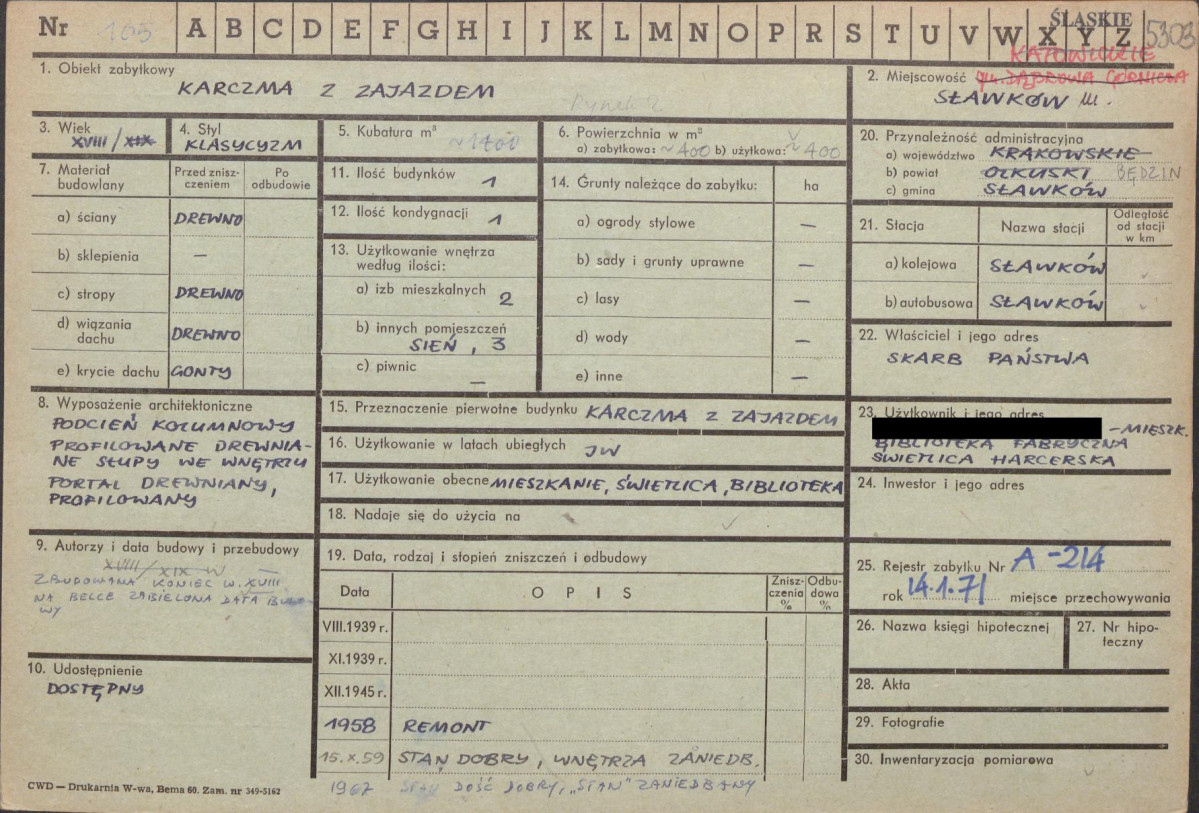 Nr 165 A B C D E F G H I J K L M N O P R S T U V W X Y Z ŚLĄSKIE 5303
KATOWICKIE
1. Obiekt zabytkowy
KARCZMA Z ZAJAZDEM
Rynek 2
2. Miejscowość gm. DĄBROWA GÓRNICZA
SŁAWKÓW m.
3. Wiek
XVIII / XIX
4. Styl
KLASYCYZM
5. Kubatura m³
~ 1700
6. Powierzchnia w m²
a) zabytkowa: ~ 400 b) użytkowa: ~ 400
20. Przynależność administracyjna
a) województwo KRAKOWSKIE
b) powiat OLKUSKI BĘDZIN
c) gmina SŁAWKÓW
7. Materiał budowlany
Przed znisz-
czeniem
Po
odbudowie
a) ściany DREWNO
b) sklepienia —
c) stropy DREWNO
d) wiązania
dachu DREWNO
e) krycie dachu GONTY
11. Ilość budynków 1
12. Ilość kondygnacji 1
13. Użytkowanie wnętrza
według ilości:
a) izb mieszkalnych 2
b) innych pomieszczeń
SIEŃ, 3
c) piwnic —
14. Grunty należące do zabytku: ha
a) ogrody stylowe —
b) sady i grunty uprawne —
c) lasy —
d) wody —
e) inne —
21. Stacja Nazwa stacji
Odległość
od stacji
w km
a) kolejowa SŁAWKÓW
b) autobusowa SŁAWKÓW
22. Właściciel i jego adres
SKARB PAŃSTWA
8. Wyposażenie architektoniczne
PODCIEŃ KOLUMNOWY
PROFILOWANE DREWNIA-
NE SŁUPY WE WNĘTRZU
PORTAL DREWNIANY,
PROFILOWANY
15. Przeznaczenie pierwotne budynku KARCZMA Z ZAJAZDEM
16. Użytkowanie w latach ubiegłych JW
17. Użytkowanie obecne MIESZKANIE, ŚWIETLICA, BIBLIOTEKA
18. Nadaje się do użycia na
23. Użytkownik i jego adres
– MIESZK.
BIBLIOTEKA FABRYCZNA
ŚWIETLICA HARCERSKA
24. Inwestor i jego adres
9. Autorzy i data budowy i przebudowy
XVIII/XIX W
ZBUDOWANA KONIEC W. XVIII
NA BELCE ZABIELONA DATA BUDO-
WY
10. Udostępnienie
DOSTĘPNY
19. Data, rodzaj i stopień zniszczeń i odbudowy
Data OPIS
Znisz-
czenia
%
Odbu-
dowa
%
VIII.1939 r.
XI.1939 r.
XII.1945 r.
1958 REMONT
15.X.59 STAN DOBRY, WNĘTRZA ZANIEDB.
1967 STAN DOŚĆ DOBRY, „STAN" ZANIEDBANY
25. Rejestr zabytku Nr A-214
rok 14.1.71 miejsce przechowywania
26. Nazwa księgi hipotecznej
27. Nr hipo-
teczny
28. Akta
29. Fotografie
30. Inwentaryzacja pomiarowa
CWD — Drukarnia W-wa, Bema 60. Zam. nr 349-5162